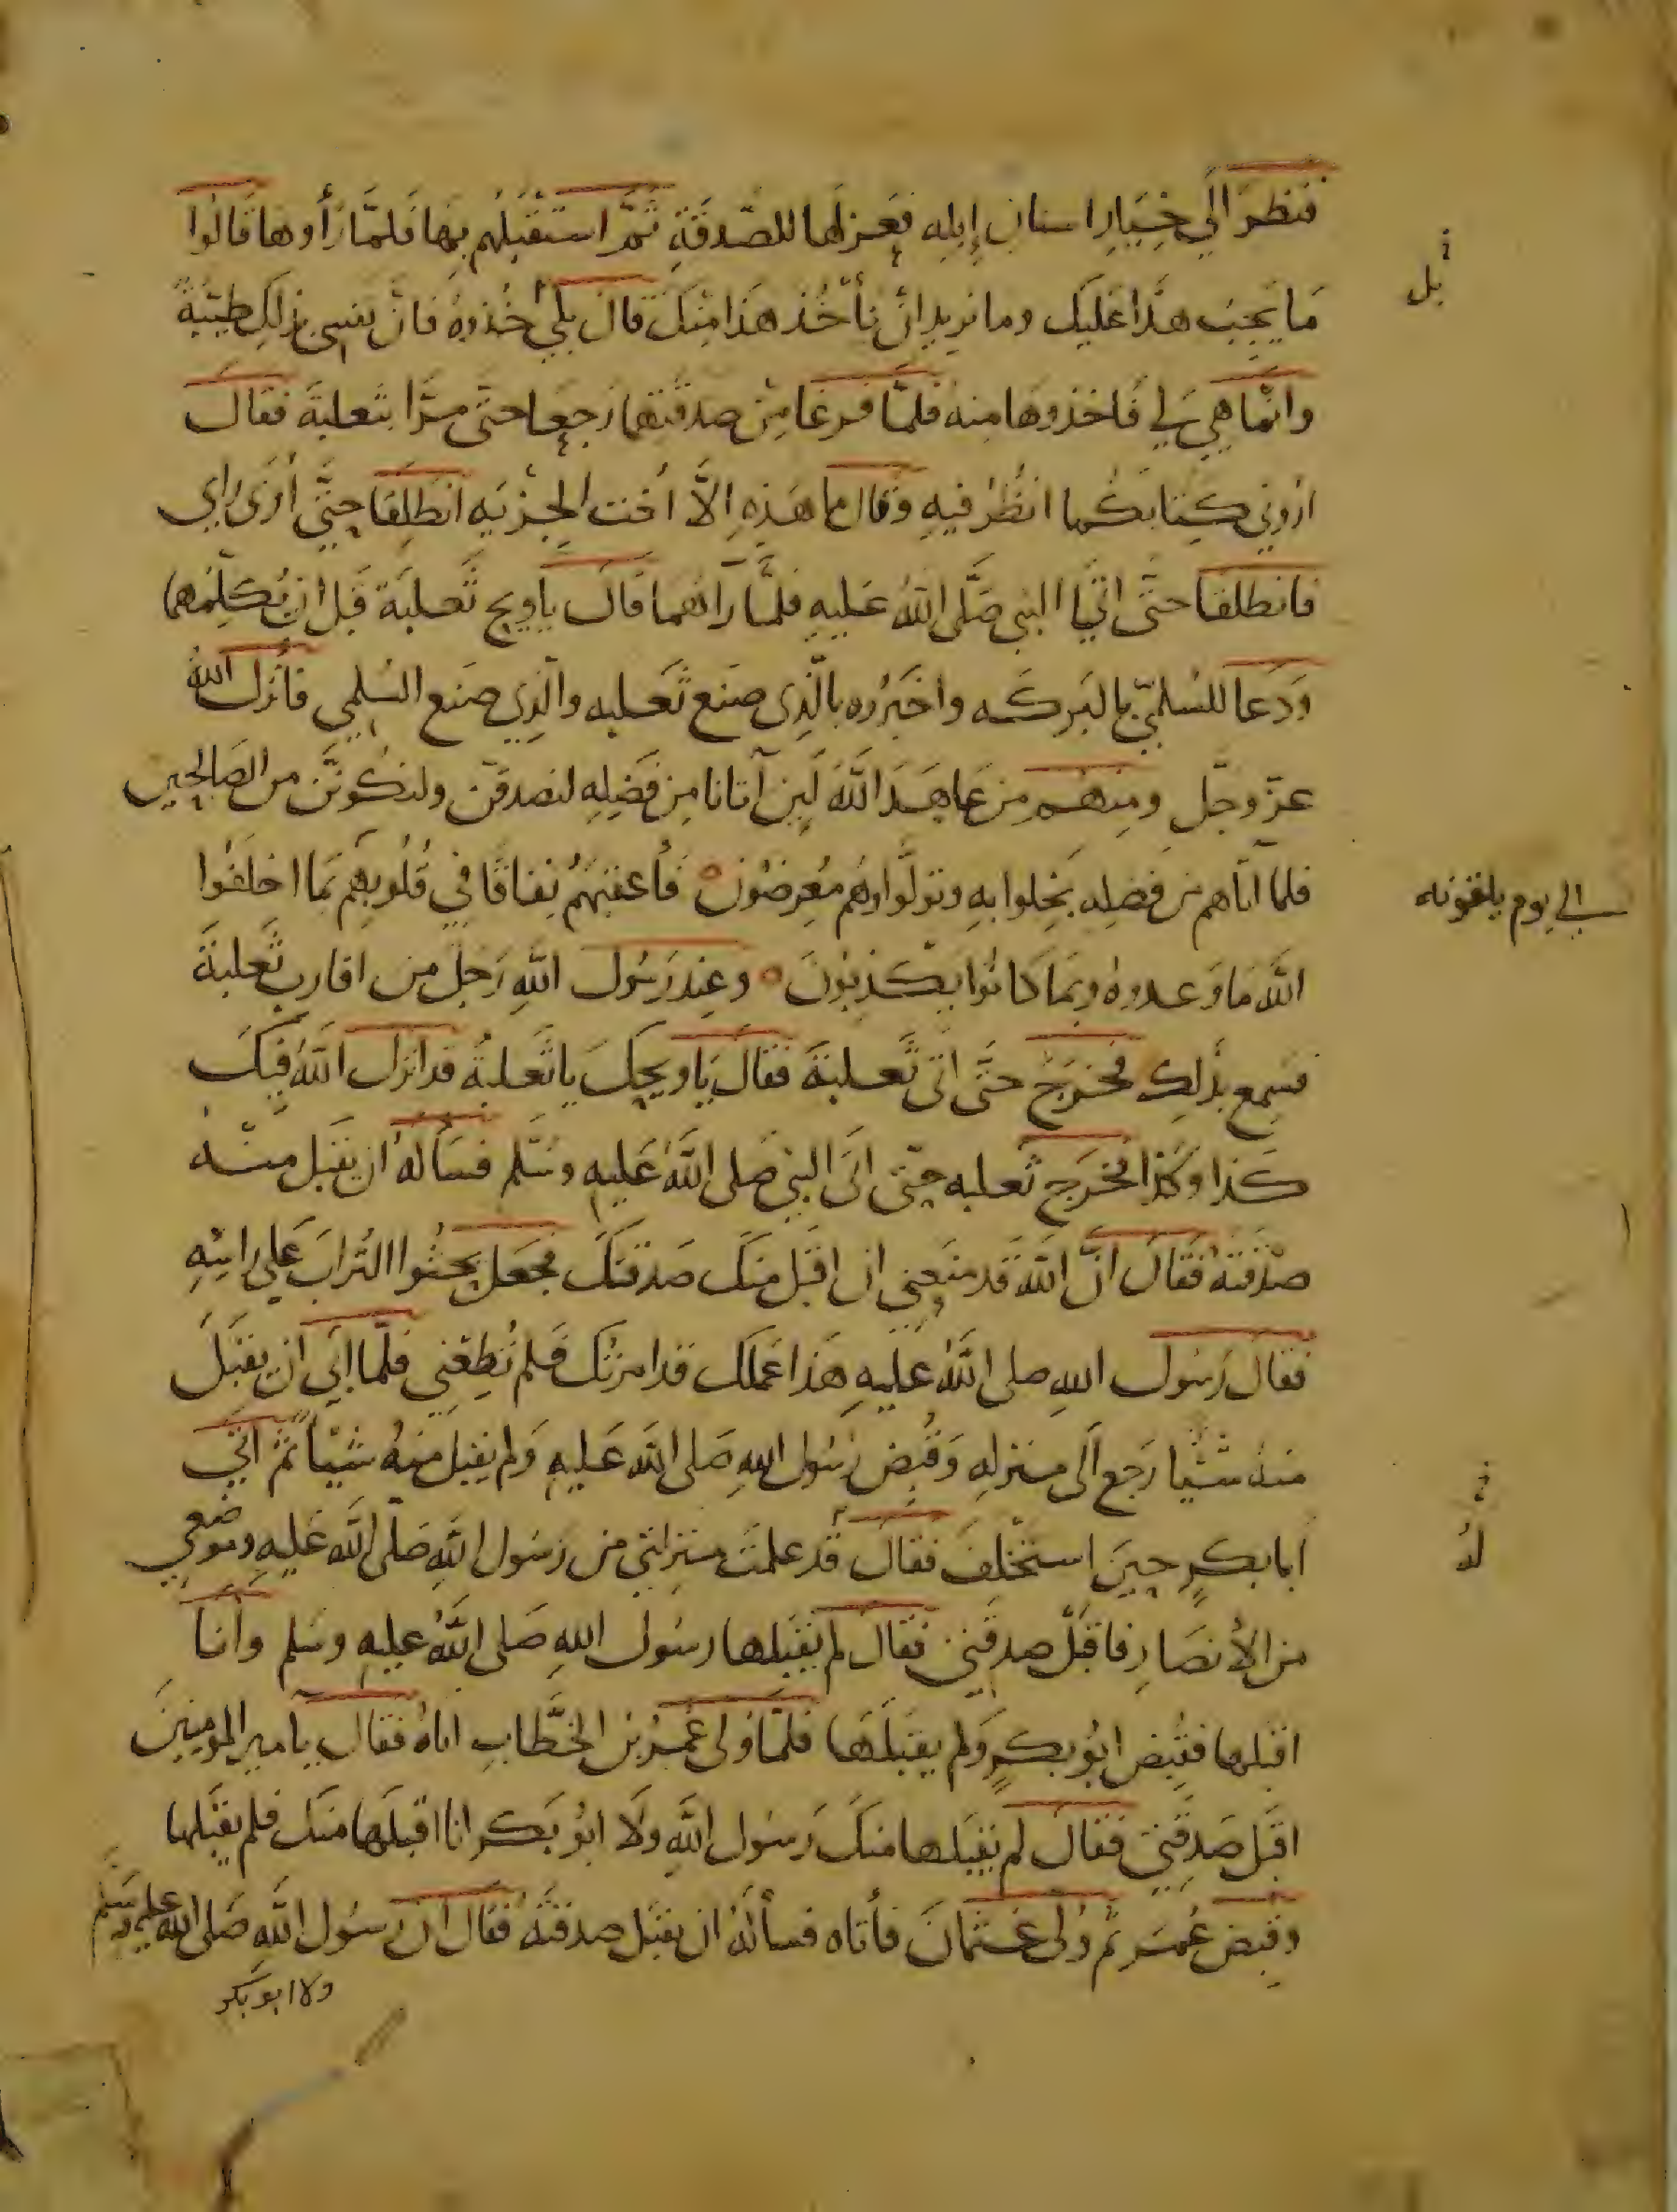 فنظر الي خيار اسنان إبله فعزلها للصدقة ثم استقبلهم بها فلما رأوها قالوا
ما يجب هذا عليك وما نريد ان نأخذ هذا منك قال بلي خذوه فان نفسي بذلك طيبة
بل
وانما هي لي فاخذوها منه فلما فرغا من صدقتهما رجعا حتى مرا بثعلبة فقال
اروني كتابكما انظر فيه وقال ما هذه الا اخت الجزيه انطلقا حتى أرى رايي
فانطلقا حتى اتيا النبي صلى الله عليه فلما رآهما قال يا ويح ثعلبة قبل ان يكلمهما
ودعا للسلمي بالبركه واخبروه بالذي صنع ثعلبه والذي صنع السلمي فأنزل الله
عز وجل ومنهم من عاهد الله لين آتانا من فضله لنصدقن ولنكونن من الصالحين
فلما آتاهم من فضله بخلوا به وتولوا وهم معرضون فأعقبهم نفاقا في قلوبهم بما اخلفوا
الي يوم يلقونه
الله ما وعدوه وبما كانوا يكذبون وعند رسول الله رجل من اقارب ثعلبة
فسمع بذلك فخرج حتى اتى ثعلبة فقال يا ويحك يا ثعلبة قد انزل الله فيك
كذا وكذا فخرج ثعلبه حتى اتى النبي صلى الله عليه وسلم فسأله ان يقبل منه
صدقته فقال ان الله قد منعني ان اقبل منك صدقتك فجعل يحثوا التراب علي راسه
فقال رسول الله صلى الله عليه هذا عملك قد امرتك فلم تطعني فلما ابى ان يقبل
منه شيا رجع الى منزله وقبض رسول الله صلى الله عليه ولم يقبل منه شيا ثم اتى
ابا بكر حين استخلف فقال قد علمت منزلتي من رسول الله صلى الله عليه وموضعي
له
من الأنصار فاقبل صدقتي فقال لم يقبلها رسول الله صلى الله عليه وسلم وانا
اقبلها فقبض ابو بكر ولم يقبلها فلما ولى عمر بن الخطاب اتاه فقال يا امير المومنين
اقبل صدقتي فقال لم يقبلها منك رسول الله ولا ابو بكر انا اقبلها منك فلم يقبلها
وقبض عمر ثم ولى عثمان فأتاه فسأله ان يقبل صدقته فقال ان رسول الله صلى الله عليه وسلم
ولا ابو بكر